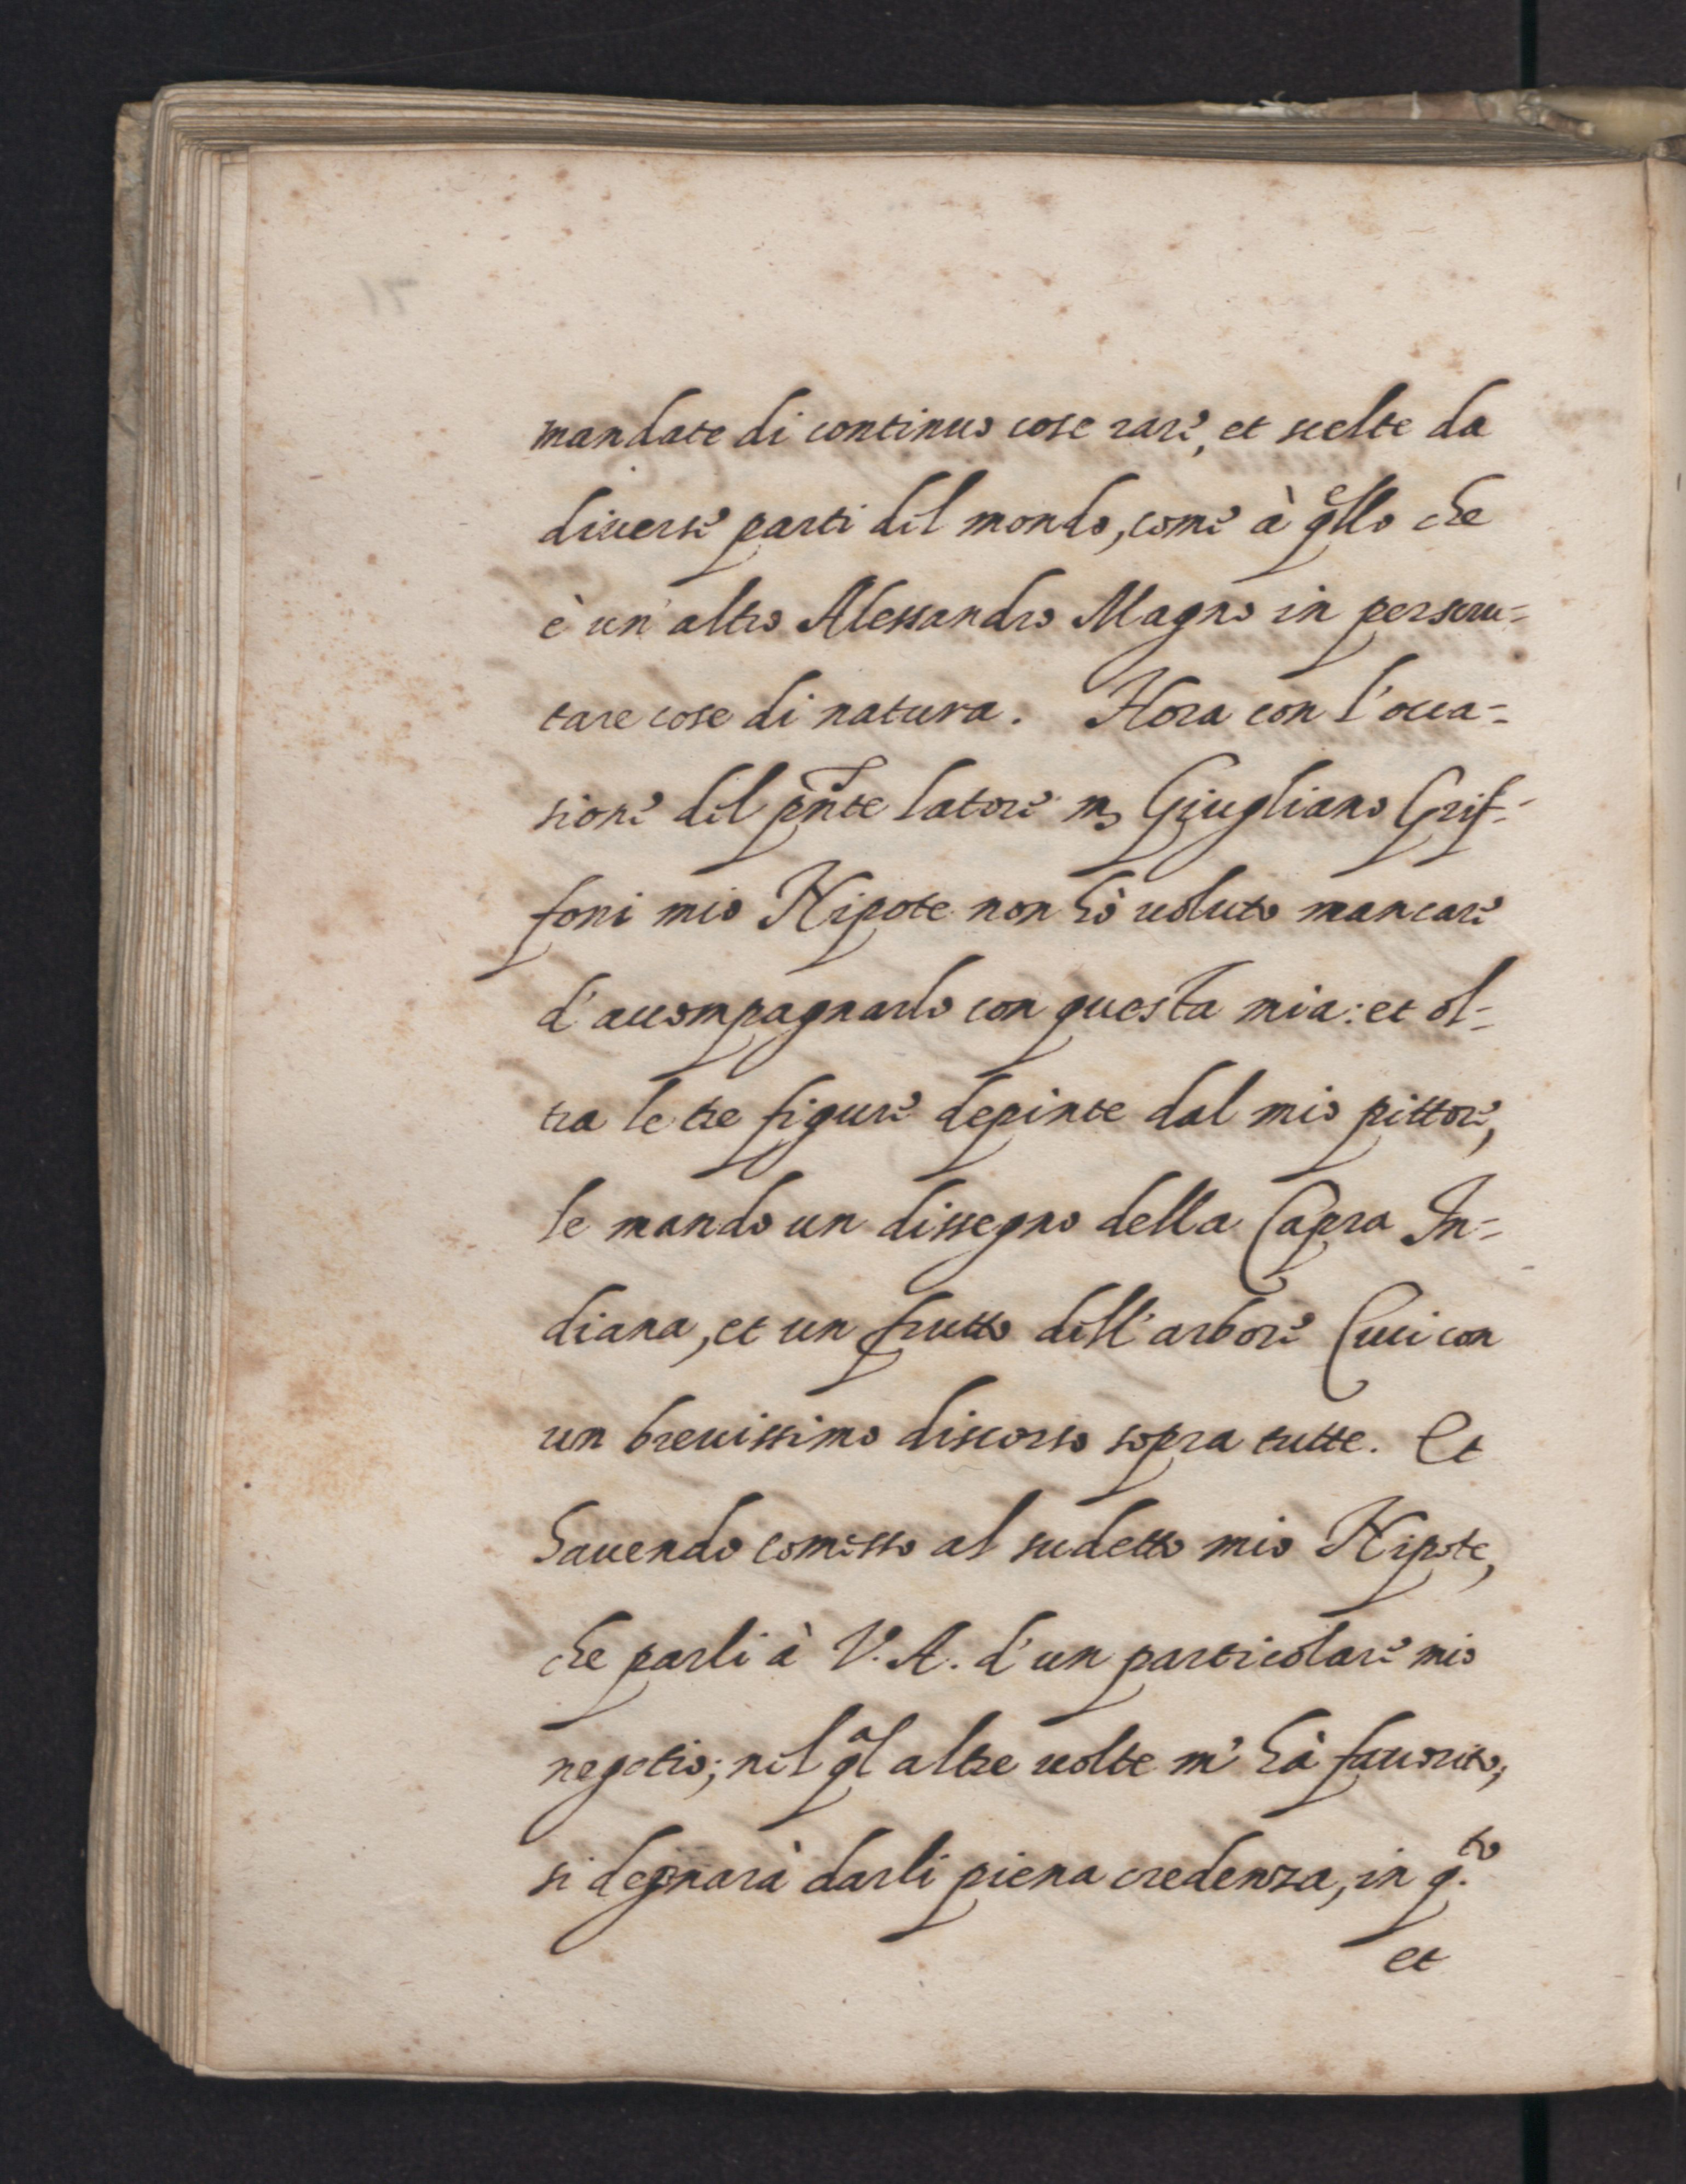 mandate di continuo cose rare, et scelte da
diverse parti del mondo, come à qllo che
è un' altro Alessandro Magno in perscru=
tare cose di natura. Hora con l'occa=
sione del pnte latore m Giugliano Grif=
foni mio Nipote non hò voluto mancare
d'accompagnarlo con questa mia: et ol=
tra le tre figure depinte dal mio pittore,
le mando un dissegno della Capra In=
diana, et un frutto dell'arbore Cuci con
un brevissimo discorso sopra tutte. Et
havendo comesso al sudetto mio Nipote,
che parli à V. A. d'un particolare mio
negotio; nel ql altre volte m'hà favorito;
si degnarà darli piena credenza, in q.to
et